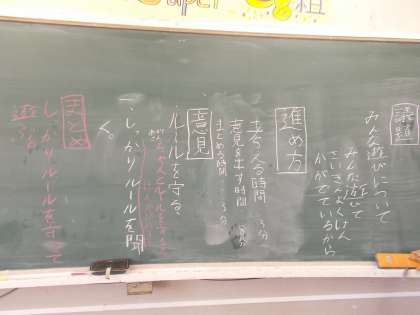 Super
組
議題
みんな遊びについて
みんな遊びで
さいきんよくけん
かがでているから
進め方
考える時間 5分
意見を出す時間 5分
まとめる時間 5分
意見
・ルールを守る
・しっかりルールを聞
く。
まとめ
しっかりルールを守って
遊ぶ